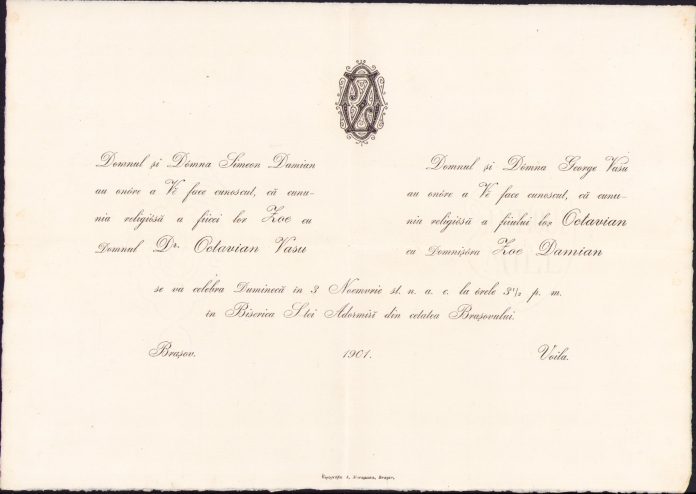 Domnul și Dómna Simeon Damian
au onóre a Vĕ face cunoscut, că cunu-
nia religiósă a fiicei lor Zoe cu
Domnul Dr. Octavian Vasu
Domnul și Dómna George Vasu
au onóre a Vĕ face cunoscut, că cunu-
nia religiósă a fiiului lor Octavian
cu Domnișóra Zoe Damian
se va celebra Duminecă în 3 Noemvrie st. n. a. c. la órele 3½ p. m.
în Biserica S-tei Adormiri din cetatea Brașovului.
Brașov. 1901. Voila.
Tipografia A. Mureșianu, Brașov.